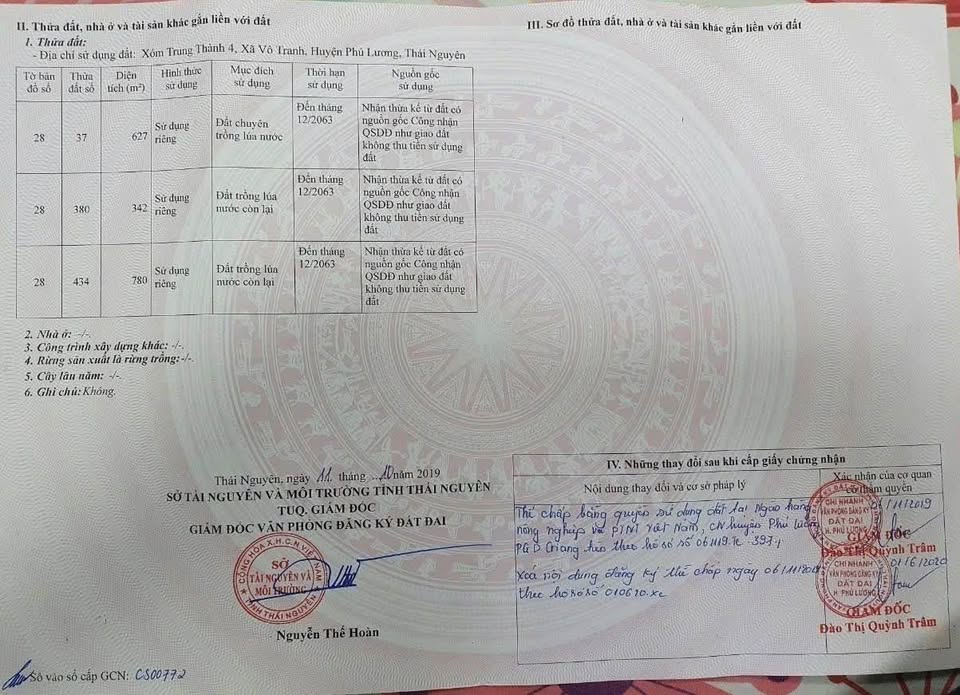 II. Thửa đất, nhà ở và tài sản khác gắn liền với đất
1. Thửa đất:
- Địa chỉ sử dụng đất: Xóm Trung Thành 4, Xã Vô Tranh, Huyện Phú Lương, Thái Nguyên
Tờ bản đồ số Thửa đất số Diện tích (m²) Hình thức sử dụng Mục đích sử dụng Thời hạn sử dụng Nguồn gốc sử dụng
28 37 627 Sử dụng riêng Đất chuyên trồng lúa nước Đến tháng 12/2063 Nhận thừa kế từ đất có nguồn gốc Công nhận QSDĐ như giao đất không thu tiền sử dụng đất
28 380 342 Sử dụng riêng Đất trồng lúa nước còn lại Đến tháng 12/2063 Nhận thừa kế từ đất có nguồn gốc Công nhận QSDĐ như giao đất không thu tiền sử dụng đất
28 434 780 Sử dụng riêng Đất trồng lúa nước còn lại Đến tháng 12/2063 Nhận thừa kế từ đất có nguồn gốc Công nhận QSDĐ như giao đất không thu tiền sử dụng đất
2. Nhà ở: -/-.
3. Công trình xây dựng khác: -/-.
4. Rừng sản xuất là rừng trồng:-/-.
5. Cây lâu năm: -/-.
6. Ghi chú: Không.
Thái Nguyên, ngày 11 tháng 10 năm 2019
SỞ TÀI NGUYÊN VÀ MÔI TRƯỜNG TỈNH THÁI NGUYÊN
TUQ. GIÁM ĐỐC
GIÁM ĐỐC VĂN PHÒNG ĐĂNG KÝ ĐẤT ĐAI
CỘNG HÒA X.H.C.N VIỆT NAM
SỞ
TÀI NGUYÊN VÀ
MÔI TRƯỜNG
TỈNH THÁI NGUYÊN
Nguyễn Thế Hoàn
Số vào sổ cấp GCN: CS00772
III. Sơ đồ thửa đất, nhà ở và tài sản khác gắn liền với đất
IV. Những thay đổi sau khi cấp giấy chứng nhận
Nội dung thay đổi và cơ sở pháp lý
Xác nhận của cơ quan
có thẩm quyền
Thế chấp bằng quyền sử dụng đất tại Ngân hàng
nông nghiệp và PTNT Việt Nam, CN huyện Phú Lương
PGD Giang Tiên theo hồ sơ số 061119.TC
/11/2019
CHI NHÁNH
VĂN PHÒNG ĐĂNG KÝ
ĐẤT ĐAI
H. PHÚ LƯƠNG
GIÁM ĐỐC
Đào Thị Quỳnh Trâm
Xoá nội dung đăng ký thế chấp ngày 06/11/2019
theo hồ sơ số 010620.XC
01/6/2020
CHI NHÁNH
VĂN PHÒNG ĐĂNG KÝ
ĐẤT ĐAI
H. PHÚ LƯƠNG
GIÁM ĐỐC
Đào Thị Quỳnh Trâm